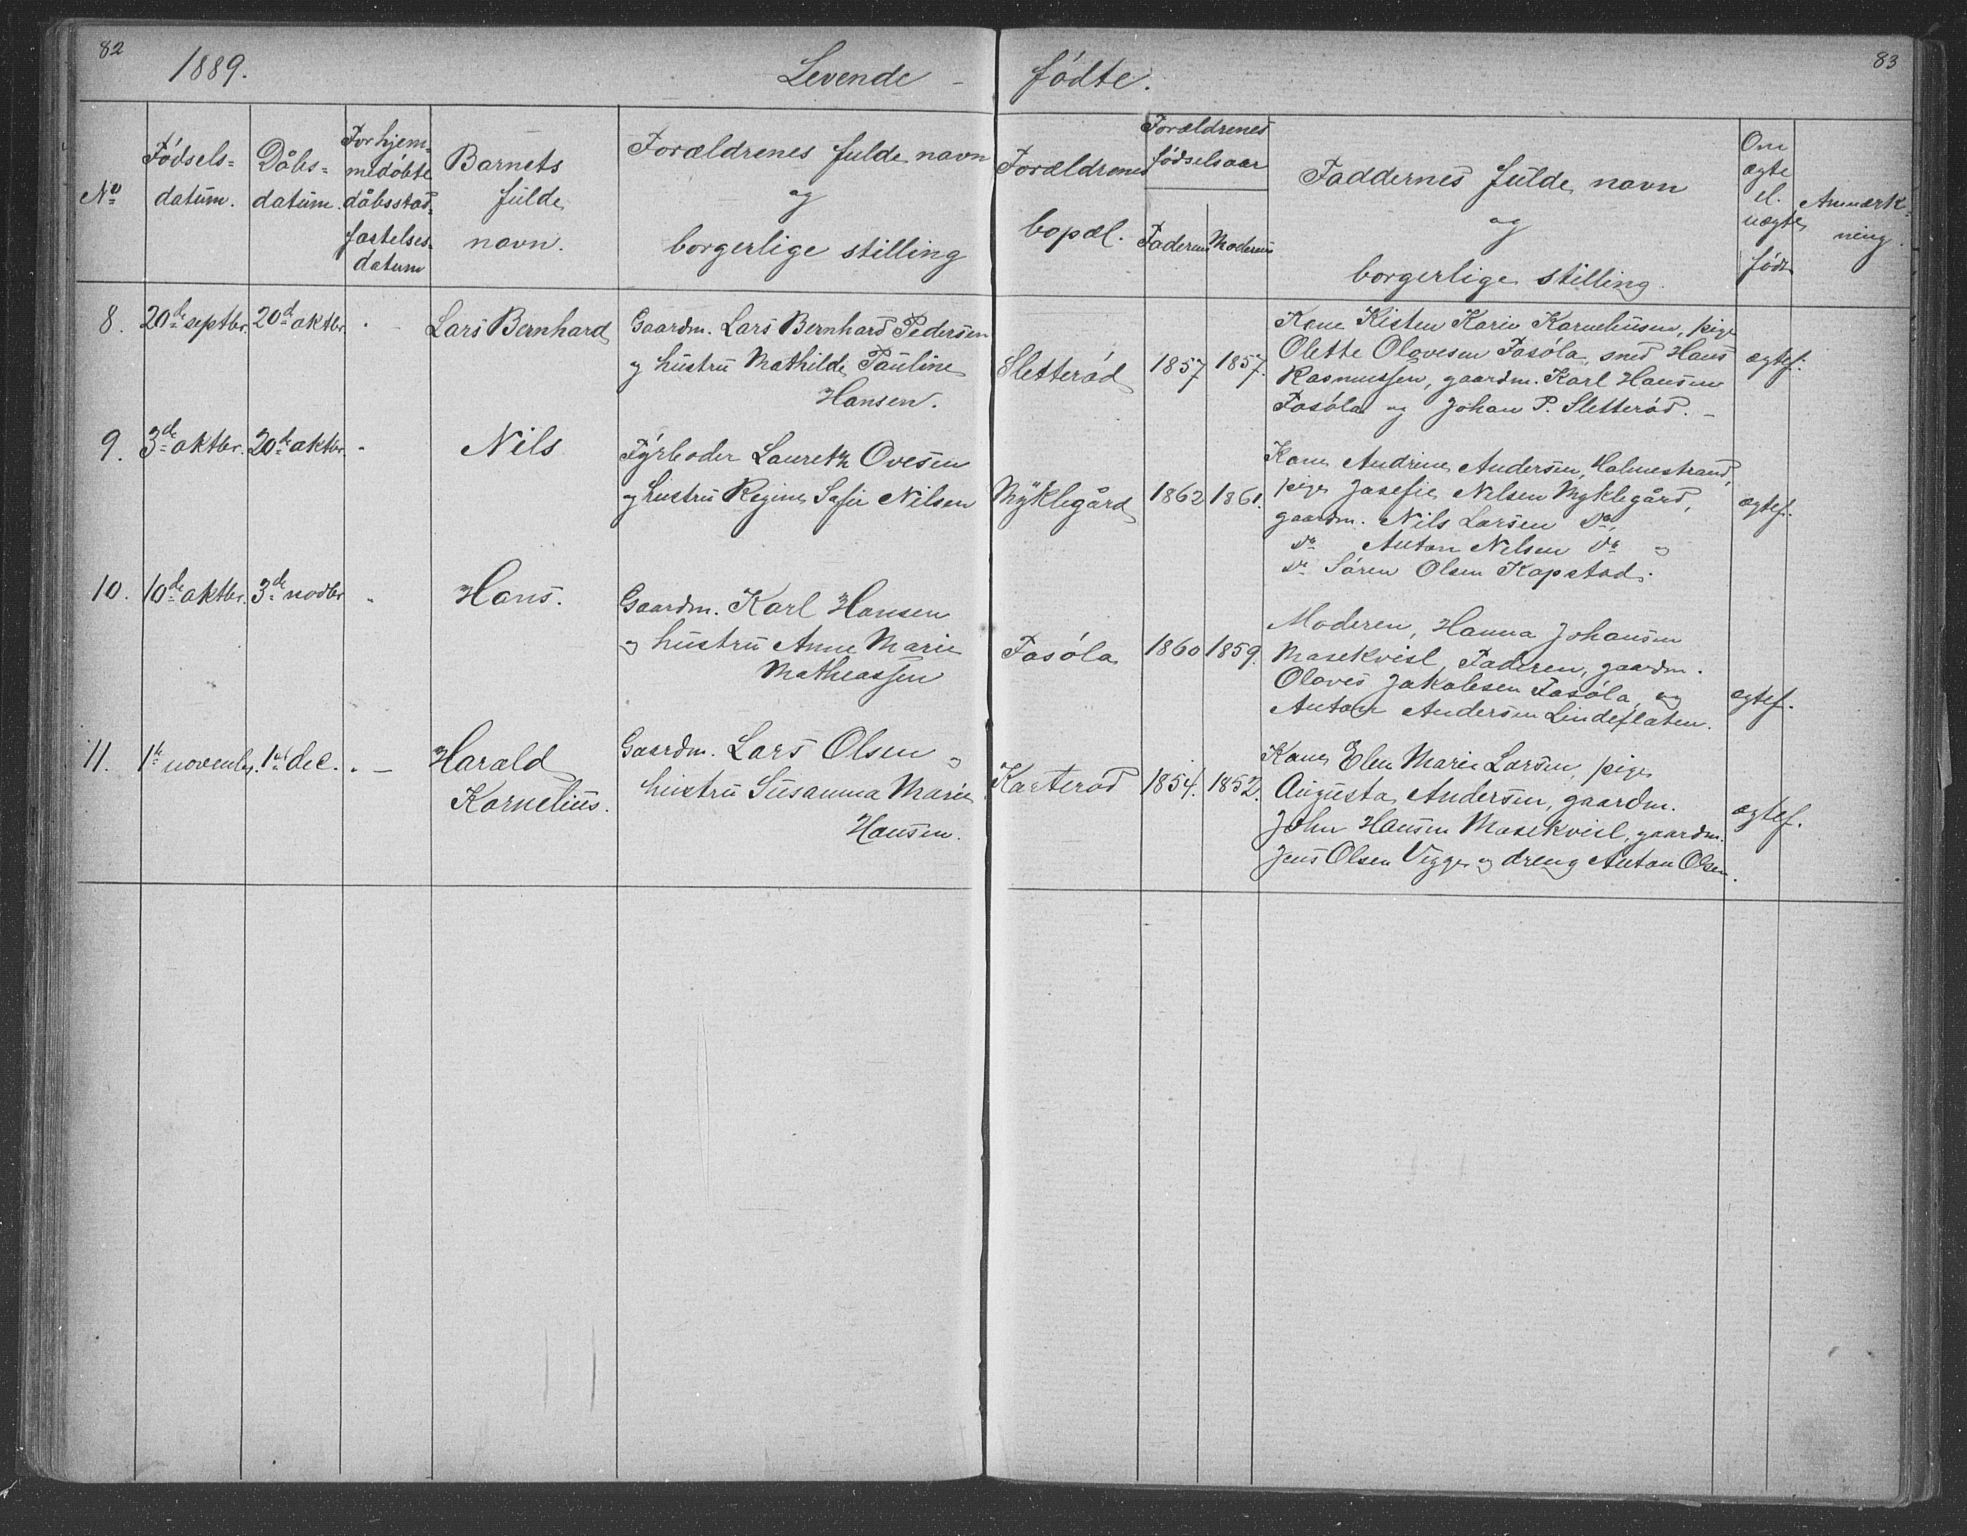 82
1889.
Levende - fødte.
83
No
Fødsels-
datum.
Dåbs-
datum.
For hjem-
medøbte
dåbsstad-
fæstelses-
datum
Barnets
fulde
navn.
Forældrenes fulde navn
og
borgerlige stilling
Forældrenes
bopæl.
Forældrenes
fødselsaar
Faderens
Moderens
Faddernes fulde navn
og
borgerlige stilling.
Om
ægte
el.
uægte
født
Anmærk-
ning.
8. 20de septbr. 20de oktbr. Lars Bernhard
Gaardm. Lars Bernhard Pedersen
og hustru Mathilde Pauline
Hansen.
Sletterød 1857 1857.
Kone Kisten Karie Korneliusen, pige
Olette Olovesen Fosøla, smed Hans
Rasmussen, gaardm. Karl Hansen
Fosøla og Johan P. Sletterød. -
ægtef.
9. 3de oktbr. 20de oktbr. Nils
Fyrbøder Lauretz Ovesen
og hustru Regine Sofie Nilsen
Myklegård 1862 1861.
Kone Andrine Andersen, Holmestrand,
pige Josefie Nilsen Myklegård,
gaardm. Nils Larsen do,
do Anton Nilsen do og
do Søren Olsen Kopstad.
ægtef.
10. 10de oktbr. 3de novbr Hans.
Gaardm. Karl Hansen
og hustru Anne Marie
Matheassen
Fosøla 1860 1859.
Moderen, Hanna Johansen
Masekvisl, Faderen, gaardm.
Oloves Jakobsen Fosøla, og
Anton Andersen Lindeflaten.
ægtef.
11. 1te novembr. 1ste dec. - Harald
Kornelius.
Gaardm. Lars Olsen og
hustru Susanna Marie
Hansen.
Korterød 1854. 1852.
Kone Elen Marie Larsen, pige
Augusta Andersen, gaardm.
John Hansen Masekvisl, gaardm.
Jens Olsen Vigge og dreng Anton Olsen.
ægtef.